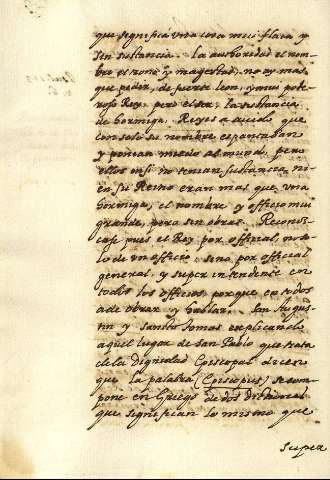 que significa una cosa mui flaca y
sin sustancia. la authoridad el nom-
bre es trono y magestad, no ay mas
que pedir, de fuerte leon, y mui pode-
roso Rey, pero el ser, la sustancia
de hormiga. Reyes a avido que
con solo su nombre espantaban
y ponian miedo al mund. pero
ellos en si no tenian sustancia ni
en su Reino eran mas que una
hormiga, el nombre y officio mui
grande, pero sin obras. Reconoz-
case pues el Rey por official, no so-
lo de un officio, sino por official
general, y super intendente en
todos los officios, porque en todos
a de obrar y hablar. San Augus-
tin y sancto Tomas explicando
aquel lugar de San Pablo que trata
de la Dignidad Episcopal dicen
que la palabra Episcopus se com-
pone en Griego de dos dictiones
que significan lo mismo que
super